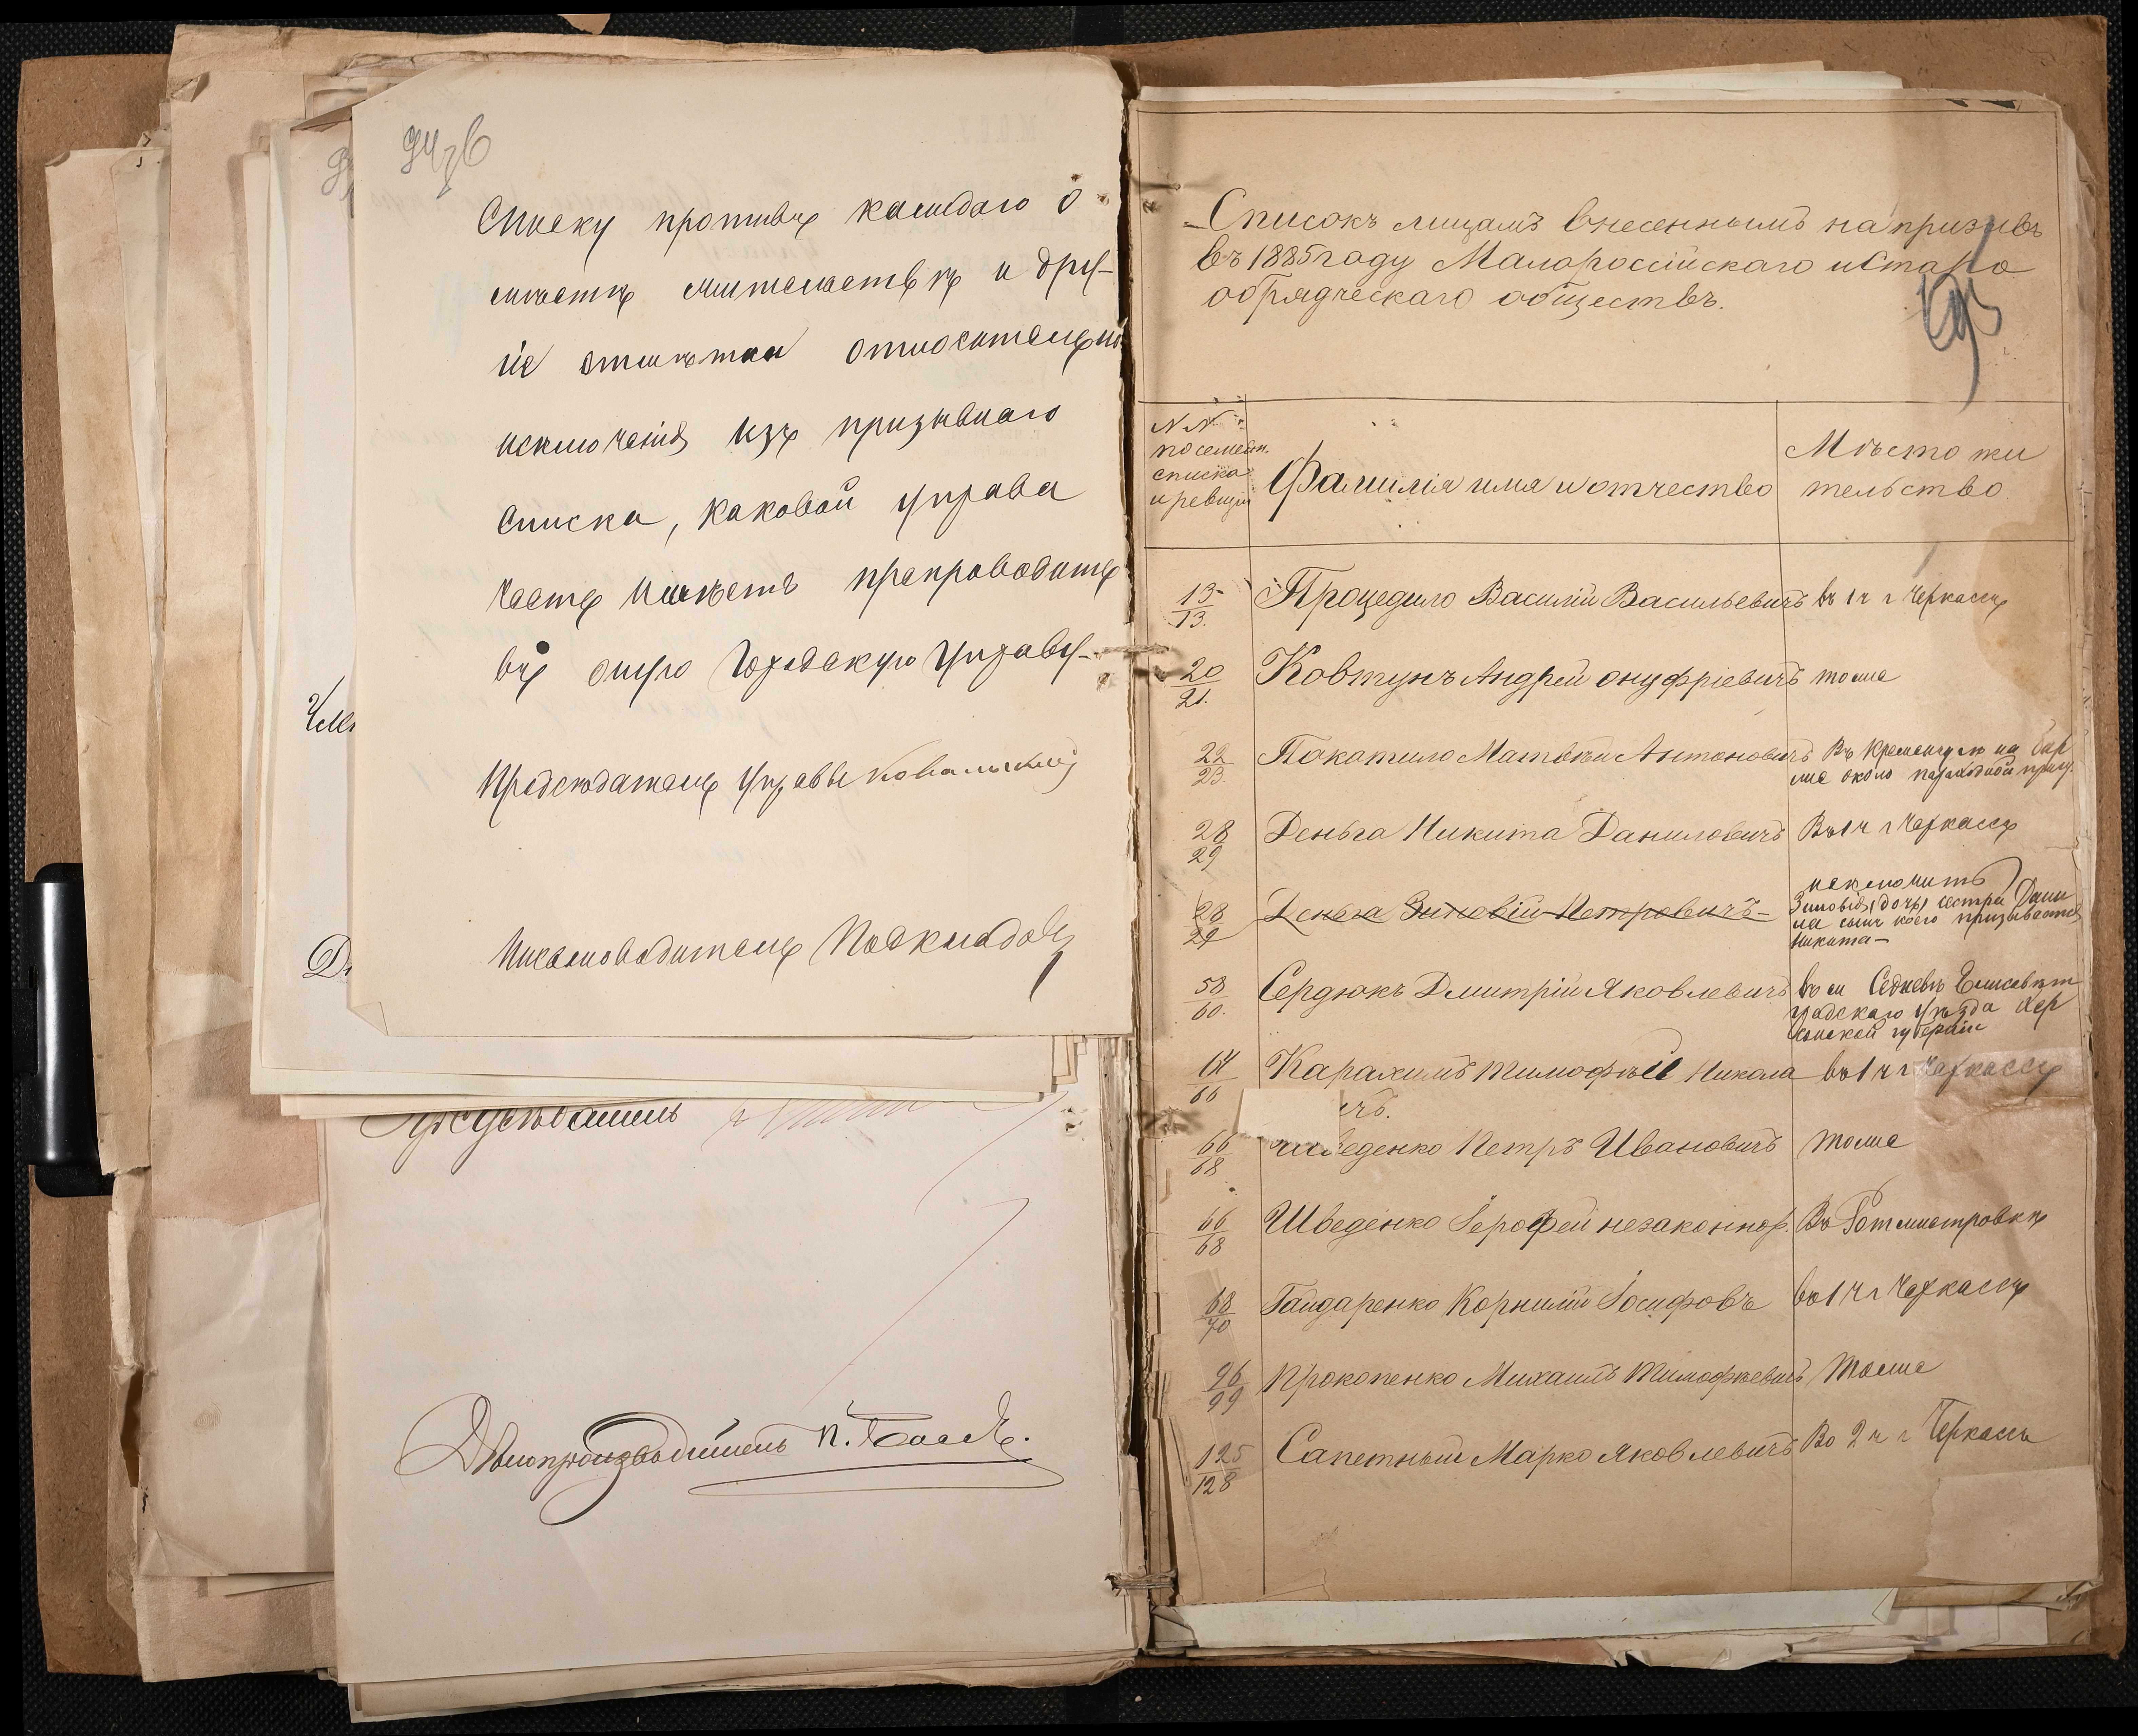 94 об
Списку противъ каждаго о
мѣстѣ жительствѣ и дру-
гіе отмѣтки относительно
исключенія изъ призывнаго
списка, каковой управа
честь имѣетъ препроводить
въ оную Городскую Управу-
Предсѣдатель управы Ковальскій
Письмоводитель
Дѣлопроизводитель П.
Списокъ лицамъ внесеннымъ на призывъ
въ 1885 году Малороссійскаго и Старо
обрядческаго обществъ.
95
N N
по семейн.
списка
и ревизіи
Фамилія имя и отчество
Мѣсто жи
тельство.
13/13. Процедило Василій Васильевичъ въ 1 ч г Черкассъ
20/21. Ковтунъ Андрей Онуфріевичъ тоже
22/23. Покатило Матвѣй Антоновичъ Въ Кременчугѣ на
около
28/29 Деньга Никита Даниловичъ Въ 1 ч г Черкассъ
28/29 Деньга Зиновій Петровичъ- исключить
Дани
ла сынъ коего призывается
Никита-
58/60. Сердюкъ Дмитрій Яковлевичъ въ Елисавет
градскаго уѣзда Хер
сонской губерніи
64/66 Карахимъ Тимофѣй Никола въ 1 ч г Черкассъ
ичъ.
66/68 Шведенко Петръ Ивановичъ тоже
66/68 Шведенко Іерофей незаконнор. Въ Ротмистровкѣ
68/70 Гайдаренко Корнилій Іосифовъ въ 1 ч г Черкассъ
96/99 Прокопенко Михаилъ Тимофѣевичъ Тоже
125/128 Сапетный Марко Яковлевичъ Во 2 ч г Черкассъ